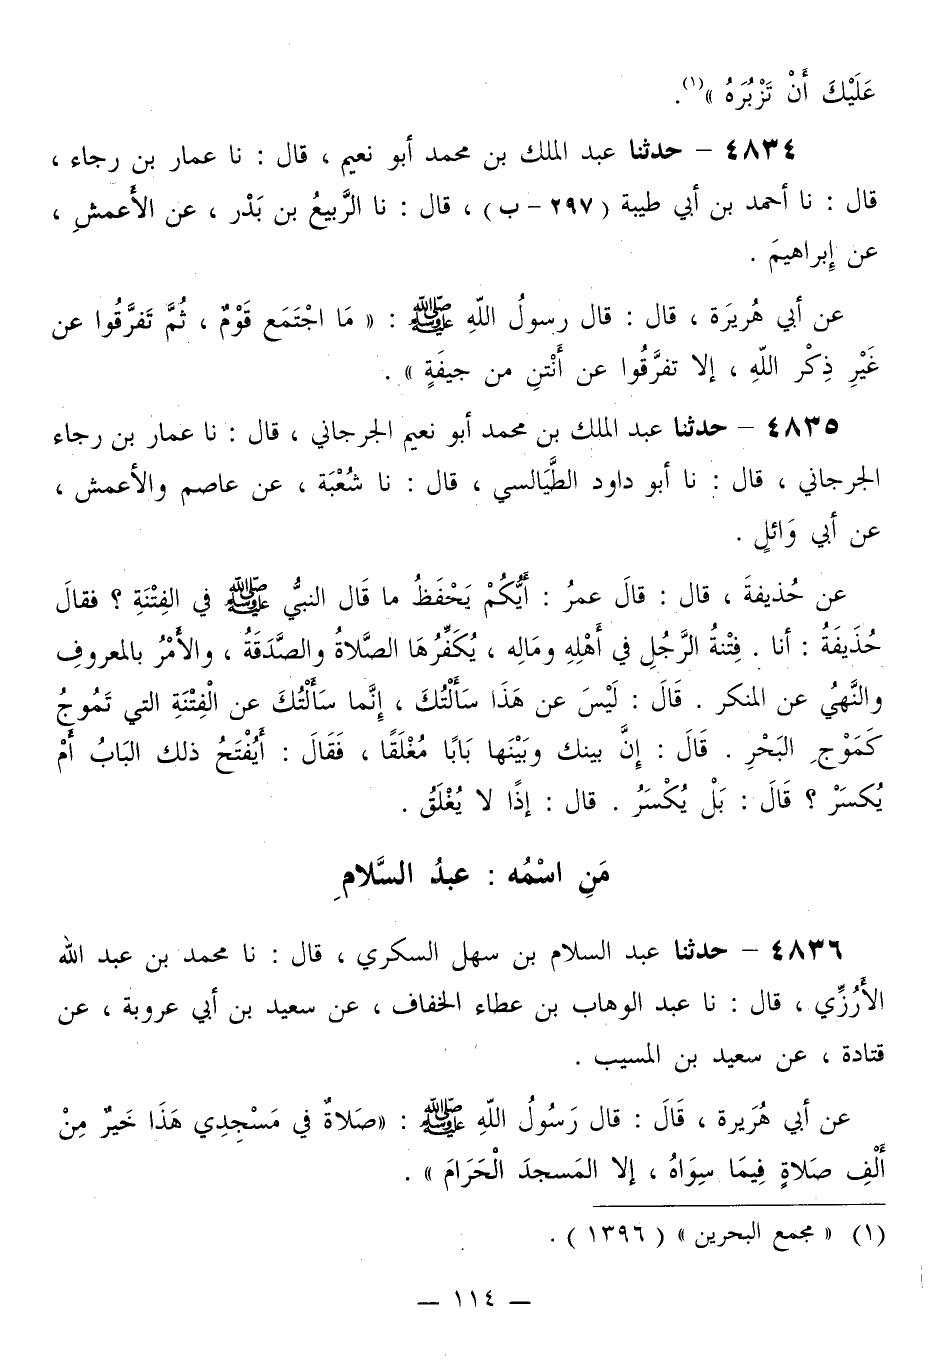 عَلَيْكَ أَنْ تَزْبُرَهُ »(١).
٤٨٣٤ – حدثنا عبد الملك بن محمد أبو نعيم ، قال : نا عمار بن رجاء ،
قال : نا أحمد بن أبي طيبة ( ٢٩٧ – ب ) ، قال : نا الرَّبيعُ بن بَدْر ، عن الأَعمشِ ،
عن إبراهيمَ .
عن أبي هُريرَة ، قال : قال رسولُ اللّهِ ﷺ : « مَا اجْتَمَع قَوْمٌ ، ثُمَّ تَفرَّقُوا عن
غَيْرِ ذِكْر اللّهِ ، إلا تفرَّقُوا عن أَنْتنِ من جيفَةٍ » .
٤٨٣٥ – حدثنا عبد الملك بن محمد أبو نعيم الجرجاني ، قال : نا عمار بن رجاء
الجرجاني ، قال : نا أبو داود الطَّيَالسي ، قال : نا شُعْبَة ، عن عاصم والأعمش ،
عن أبي وَائلٍ .
عن حُذيفةَ ، قال : قالَ عمرُ : أَيُّكُمْ يَحْفَظُ ما قَال النبيُّ ﷺ في الفِتْنَةِ ؟ فقالَ
حُذَيفَةُ : أنا . فِتْنةُ الرَّجُلِ في أَهْلِهِ ومَالِه ، يُكَفِّرُهَا الصَّلاةُ والصَّدَقَةُ ، والأَمْرُ بالمعروفِ
والنَّهيُ عن المنكر . قَالَ : لَيْسَ عن هَذَا سَأَلْتُكَ ، إنَّما سَأَلْتُكَ عن الْفِتْنَةِ التي تَمُوجُ
كَمَوْجِ البَحْرِ . قَالَ : إنَّ بينك وبَيْنَها بَابًا مُغْلَقًا ، فَقَالَ : أَيُفْتَحُ ذلك البَابُ أَمْ
يُكسَرْ ؟ قَالَ : بَلْ يُكْسَرُ . قال : إذًا لا يُغْلَقُ .
مَنِ اسْمُه : عبدُ السَّلامِ
٤٨٣٦ – حدثنا عبد السلام بن سهل السكري ، قال : نا محمد بن عبد الله
الأَرُزِّي ، قال : نا عبد الوهاب بن عطاء الخفاف ، عن سعيد بن أبي عروبة ، عن
قتادة ، عن سعيد بن المسيب .
عن أبي هُرَيرة ، قَالَ : قال رَسُولُ اللّهِ ﷺ : «صَلاةٌ في مَسْجِدِي هَذَا خَيرٌ مِنْ
أَلْفِ صَلاةٍ فِيمَا سِوَاهُ ، إلا المَسجدَ الْحَرَامَ » .
(١) « مجمع البحرين » ( ١٣٩٦ ) .
— ١١٤ —